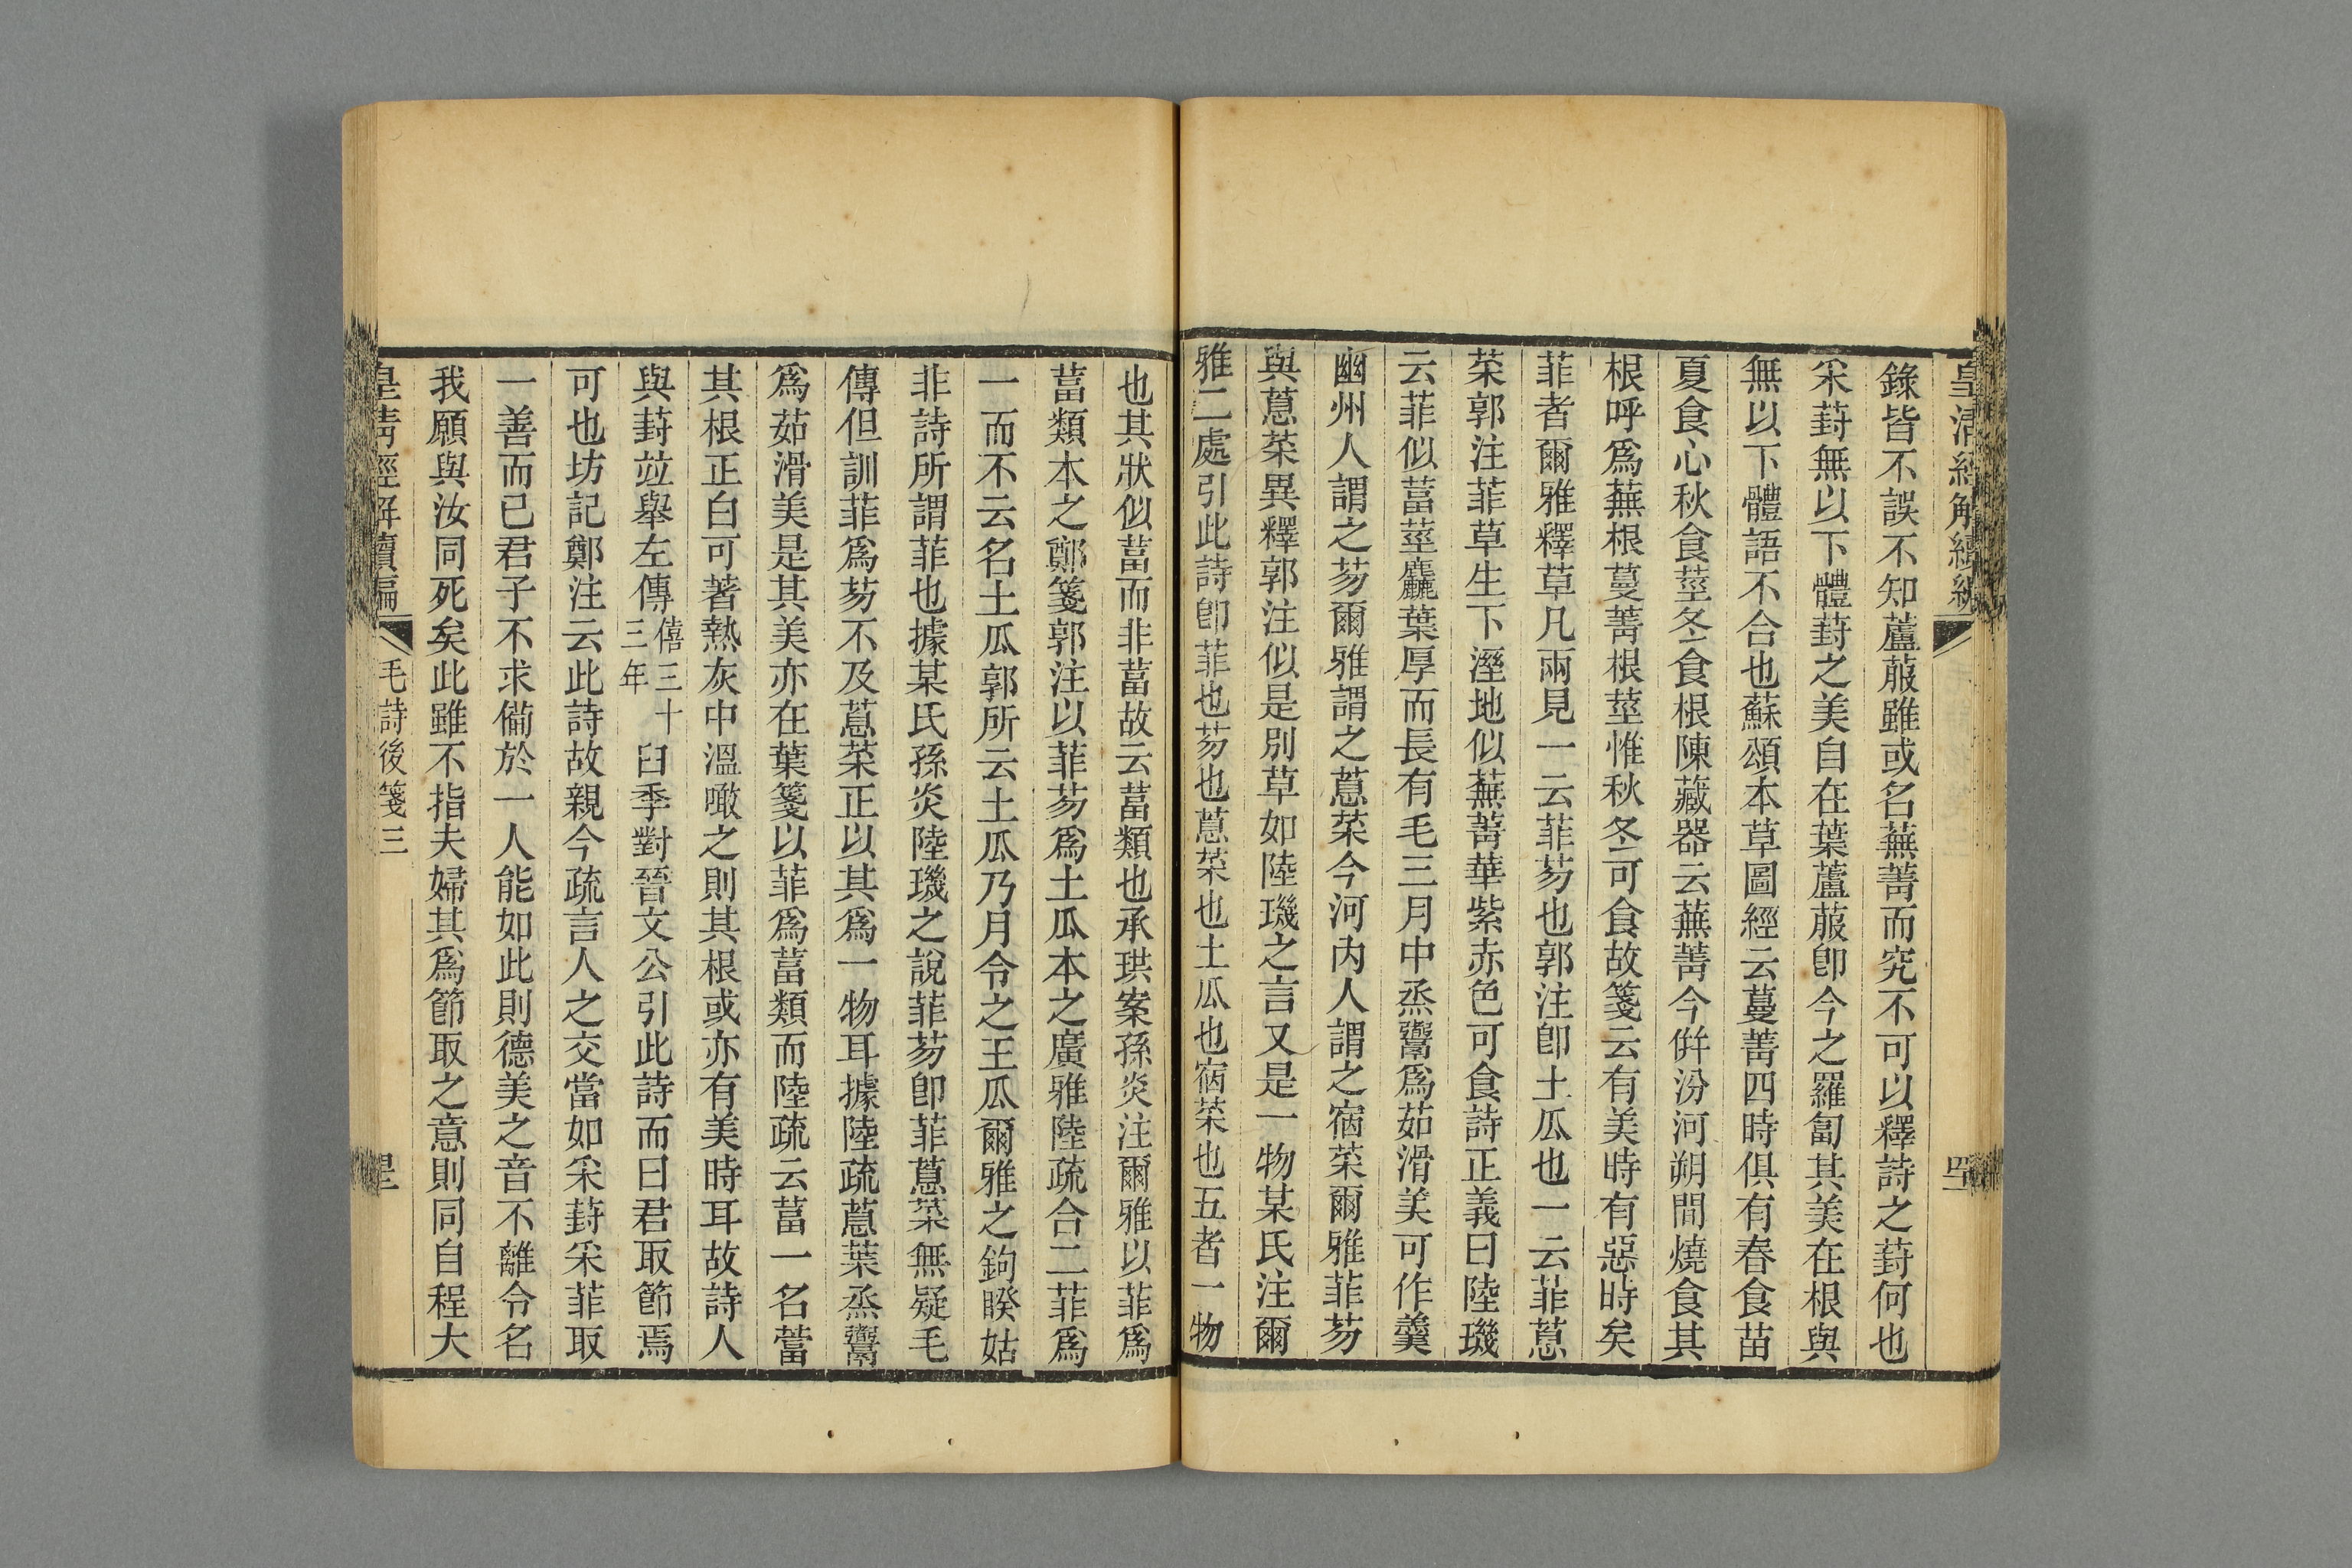 皇清經解續編
錄皆不誤不知蘆菔雖或名蕪菁而究不可以釋詩之葑何也
采葑無以下體葑之美自在葉蘆菔卽今之羅匐其美在根與
無以下體語不合也蘇頌本草圖經云蔓菁四時俱有春食苗
夏食心秋食莖冬食根陳藏器云蕪菁今倂汾河朔間燒食其
根呼爲蕪根蔓菁根莖惟秋冬可食故箋云有美時有惡時矣
菲者爾雅釋草凡兩見一云菲芴也郭注卽土瓜也一云菲蒠
菜郭注菲草生下溼地似蕪菁華紫赤色可食詩正義曰陸璣
云菲似葍莖麤葉厚而長有毛三月中烝鬻爲茹滑美可作羹
幽州人謂之芴爾雅謂之蒠菜今河内人謂之宿菜爾雅菲芴
與蒠菜異釋郭注似是別草如陸璣之言又是一物某氏注爾
雅二處引此詩卽菲也芴也蒠菜也土瓜也宿菜也五者一物
也其狀似葍而非葍故云葍類也承珙案孫炎注爾雅以菲爲
葍類本之鄭箋郭注以菲芴爲土瓜本之廣雅陸疏合二菲爲
一而不云名土瓜郭所云土瓜乃月令之王瓜爾雅之鉤睽姑
非詩所謂菲也據某氏孫炎陸璣之說菲芴卽菲蒠菜無疑毛
傳但訓菲爲芴不及蒠菜正以其爲一物耳據陸疏蒠葉烝鬻
爲茹滑美是其美亦在葉箋以菲爲葍類而陸疏云葍一名䔰
其根正白可著熱灰中溫噉之則其根或亦有美時耳故詩人
與葑竝舉左傳僖三十三年臼季對晉文公引此詩而曰君取節焉
可也坊記鄭注云此詩故親今疏言人之交當如采葑采菲取
一善而已君子不求備於一人能如此則德美之音不離令名
我願與汝同死矣此雖不指夫婦其爲節取之意則同自程大
皇清經解續編 毛詩後箋三